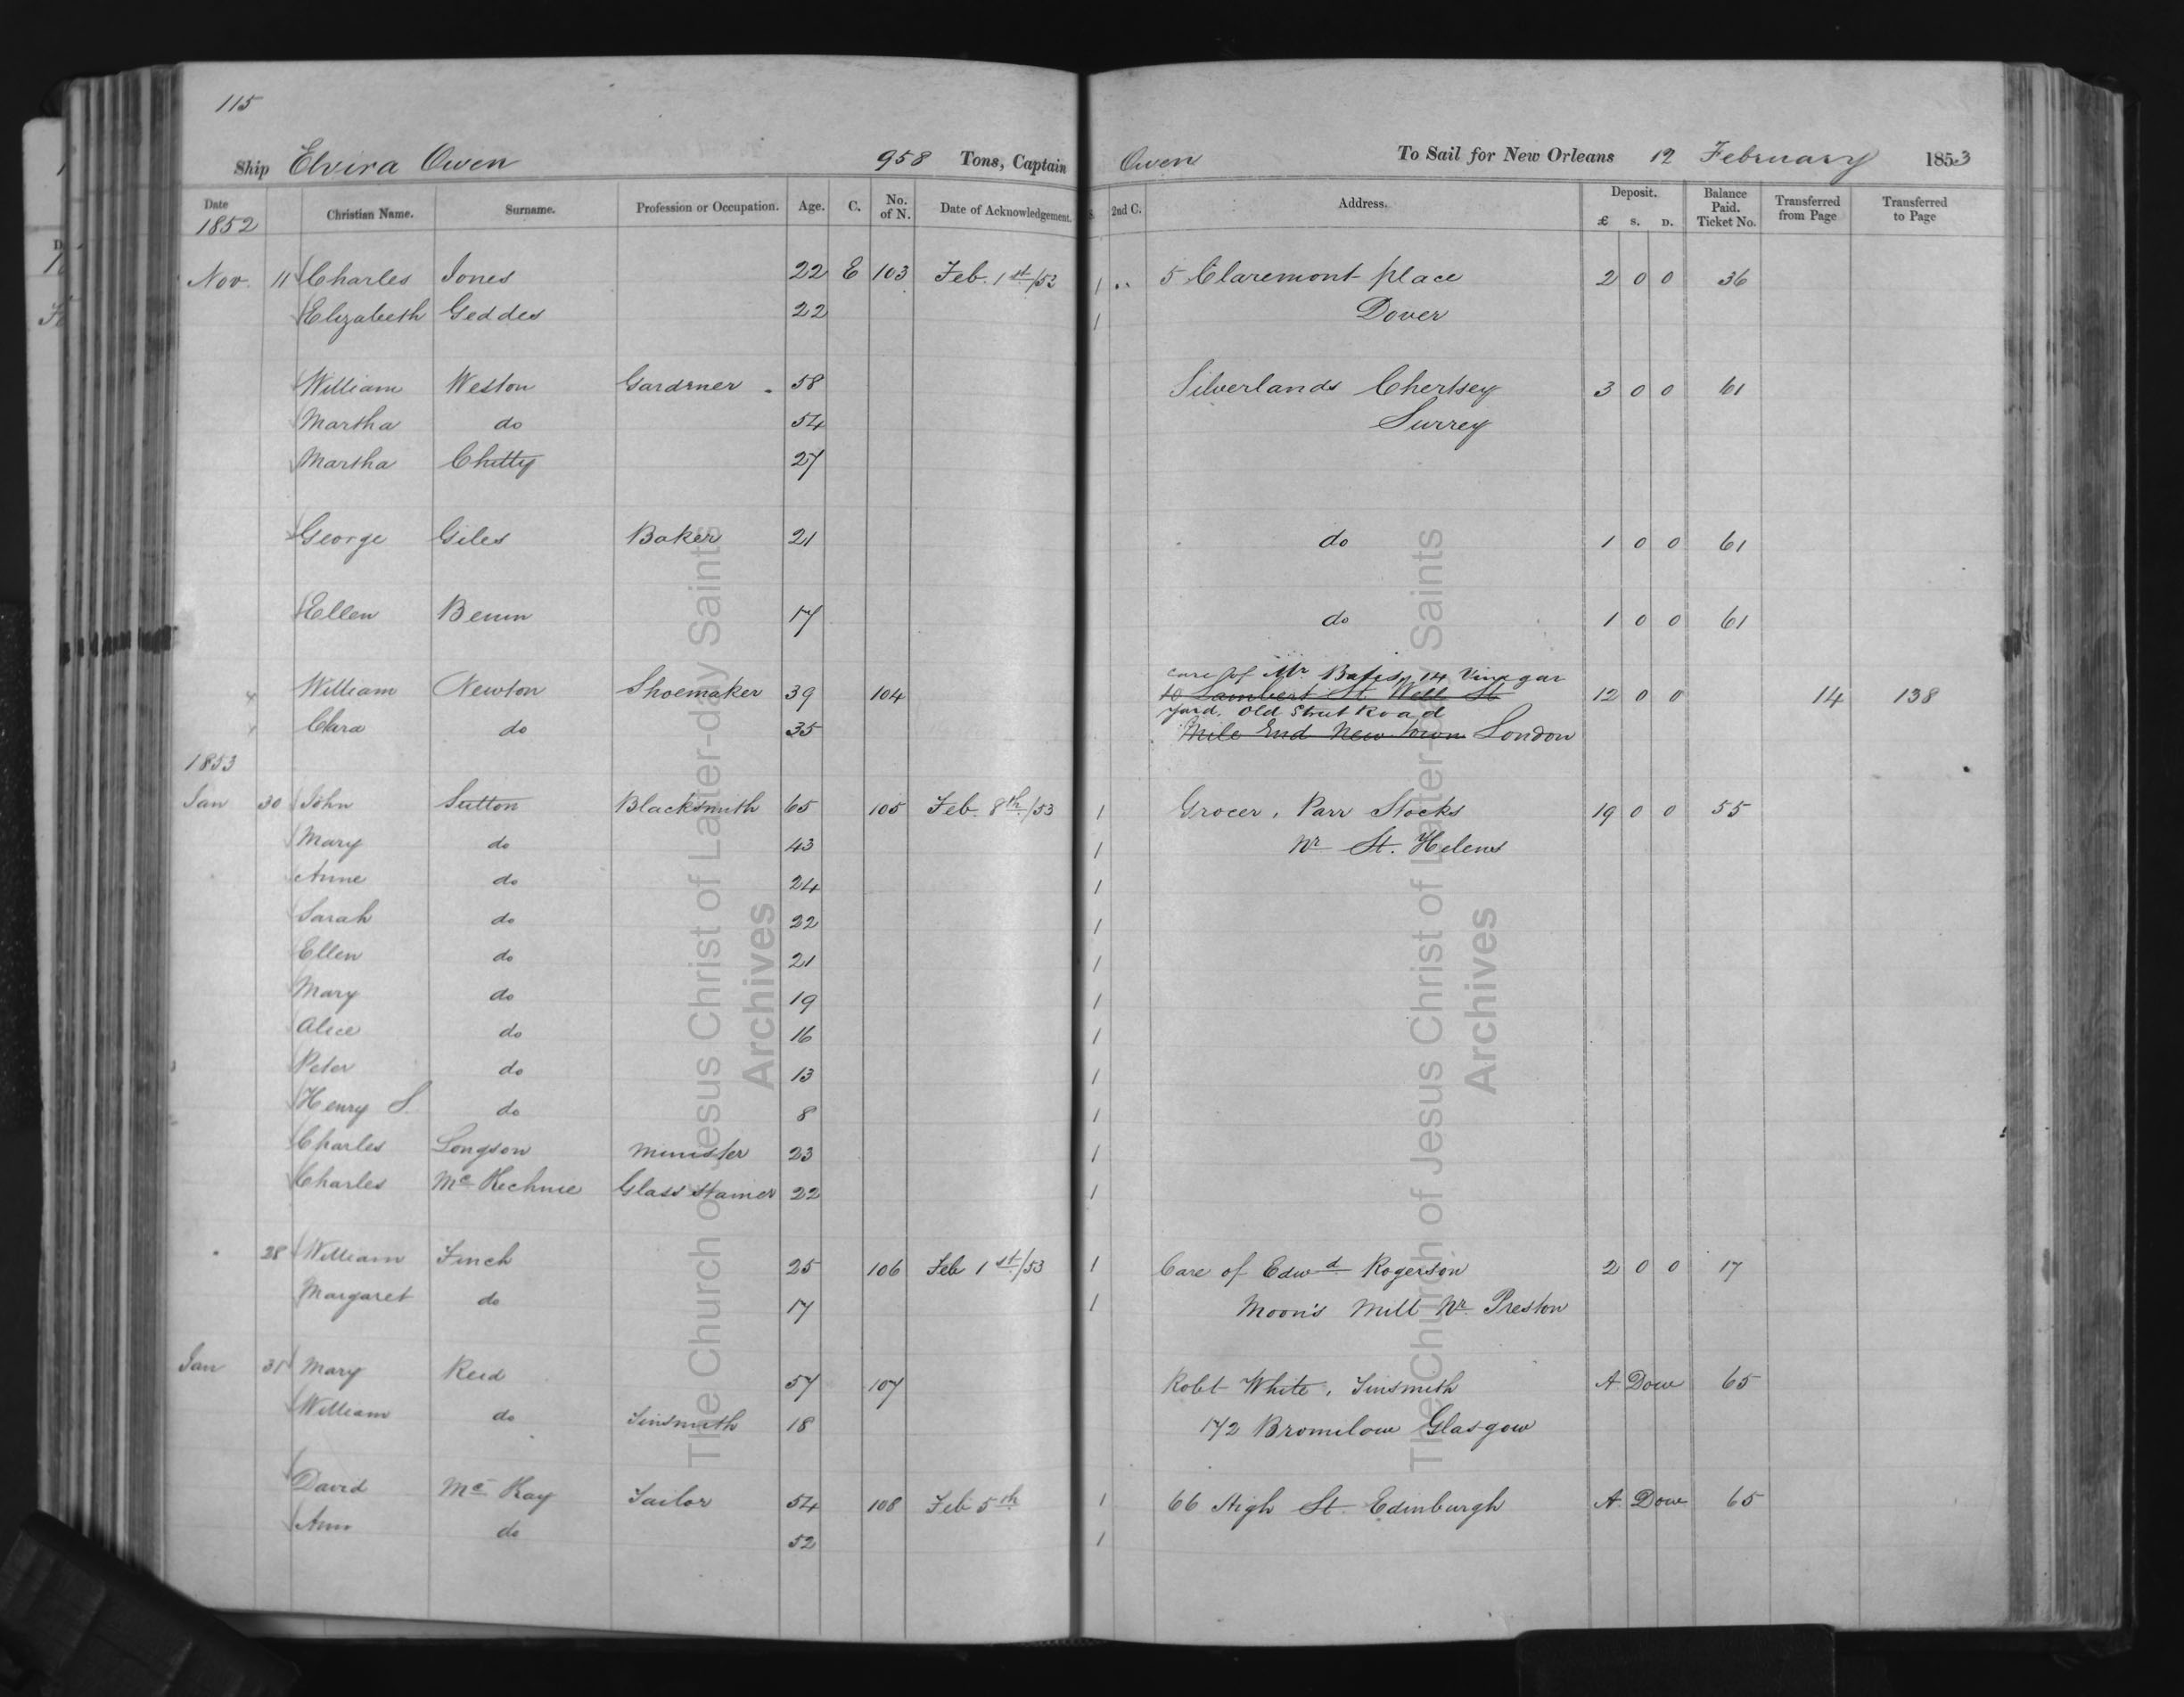 115
Ship Elvira Owen 958 Tons, Captain Owen To Sail for New Orleans 12 February 1853
Date 1852 Christian Name. Surname. Profession or Occupation. Age. C. No. of N. Date of Acknowledgement. S. 2nd C. Address. Deposit. £ S. D. Balance Paid. Ticket No. Transferred from Page Transferred to Page
Nov. 11 Charles Jones 22 E 103 Feb. 1st/53 1 " 5 Claremont place 2 0 0 36
Elizabeth Geddes 22 1 Dover
William Weston Gardener 58 Silverlands Chertsey 3 0 0 61
Martha do 54 Surrey
Martha Chitty 27
George Giles Baker 21 do 1 0 0 61
Ellen 17 do 1 0 0 61
care of Mr Bates, 14 Vinegar
William Newton Shoemaker 39 104 10 Lambert St Well St 12 0 0 14 138
yard, Old Street Road
Clara do 35 Mile End New Town London
1853
Jan 30 John Sutton Blacksmith 65 105 Feb. 8th/53 1 Grocer, Parr Stocks 19 0 0 55
Mary do 43 1 Nr St. Helens
Anne do 24 1
Sarah do 22 1
Ellen do 21 1
Mary do 19 1
Alice do 16 1
Peter do 13 1
Henry S. do 8 1
Charles Longson Minister 23 1
Charles Mc Kechnie Glass stainer 22 1
" 28 William Finch 25 106 Feb 1st/53 1 Care of Edwd Rogerson 2 0 0 17
Margaret do 17 1 Moon's Mill Nr. Preston
Jan 31 Mary Reid 57 107 Robt White, Tinsmith A Dow 65
William do Tinsmith 18 172 Bromilow Glasgow
David Mc Kay Tailor 54 108 Feb 5th 1 66 High St. Edinburgh A Dow 65
Ann do 52 1
The Church of Jesus Christ of Latter-day Saints
Archives
The Church of Jesus Christ of Latter-day Saints
Archives